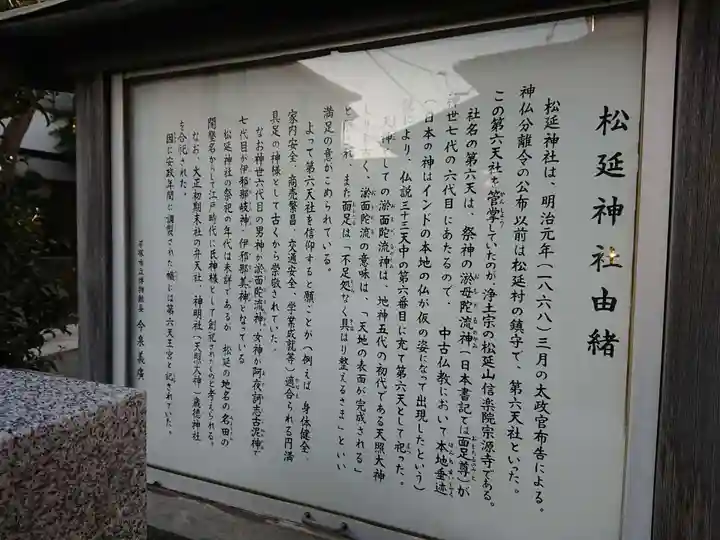 松延神社由緒
松延神社は、明治元年(一八六八)三月の太政官布告による。
神仏分離令の公布以前は松延村の鎮守で、第六天社といった。
この第六天社を管掌していたのが浄土宗の松延山信楽院宗源寺である。
社名の第六天は、祭神の淤母陀流神(日本書記では面足尊)が
世七代の六代目にあたるので、中古仏教において本地垂迹
(日本の神はインドの本地の仏が仮の姿になって出現したという)
により、仏説三十三天中の第六番目に充て第六天として祀った。
としての淤面陀流神は、地神五代の初代である天照大神
く、淤面陀流の意味は、「天地の表面が完成される」
と また面足は「不足処なく具はり整えるさま」とい
満足の意がこめられている。
よって第六天社を信仰すると願ごとが(例えば 身体健全、
家内安全、商売繁昌、交通安全、学業成就等)適合られる円満
具足の神様として古くから崇敬されていた。
なお神世六代目の男神が淤面陀流神、女神が阿夜訶志古泥神で
七代目が伊邪那岐神、伊邪那美神となっている
松延神社の祭祀の年代は未詳であるが、松延の地名の名田の
開墾名からして江戸時代に氏神様として創祀されたものと考えられる。
なお、大正初期末社の弁天社、神明社(天照大神)歳徳神社
を合祀された。
因に安政年間に調製された幟には第六天王宮と記されていた。
平塚市立博物館長 今泉義廣